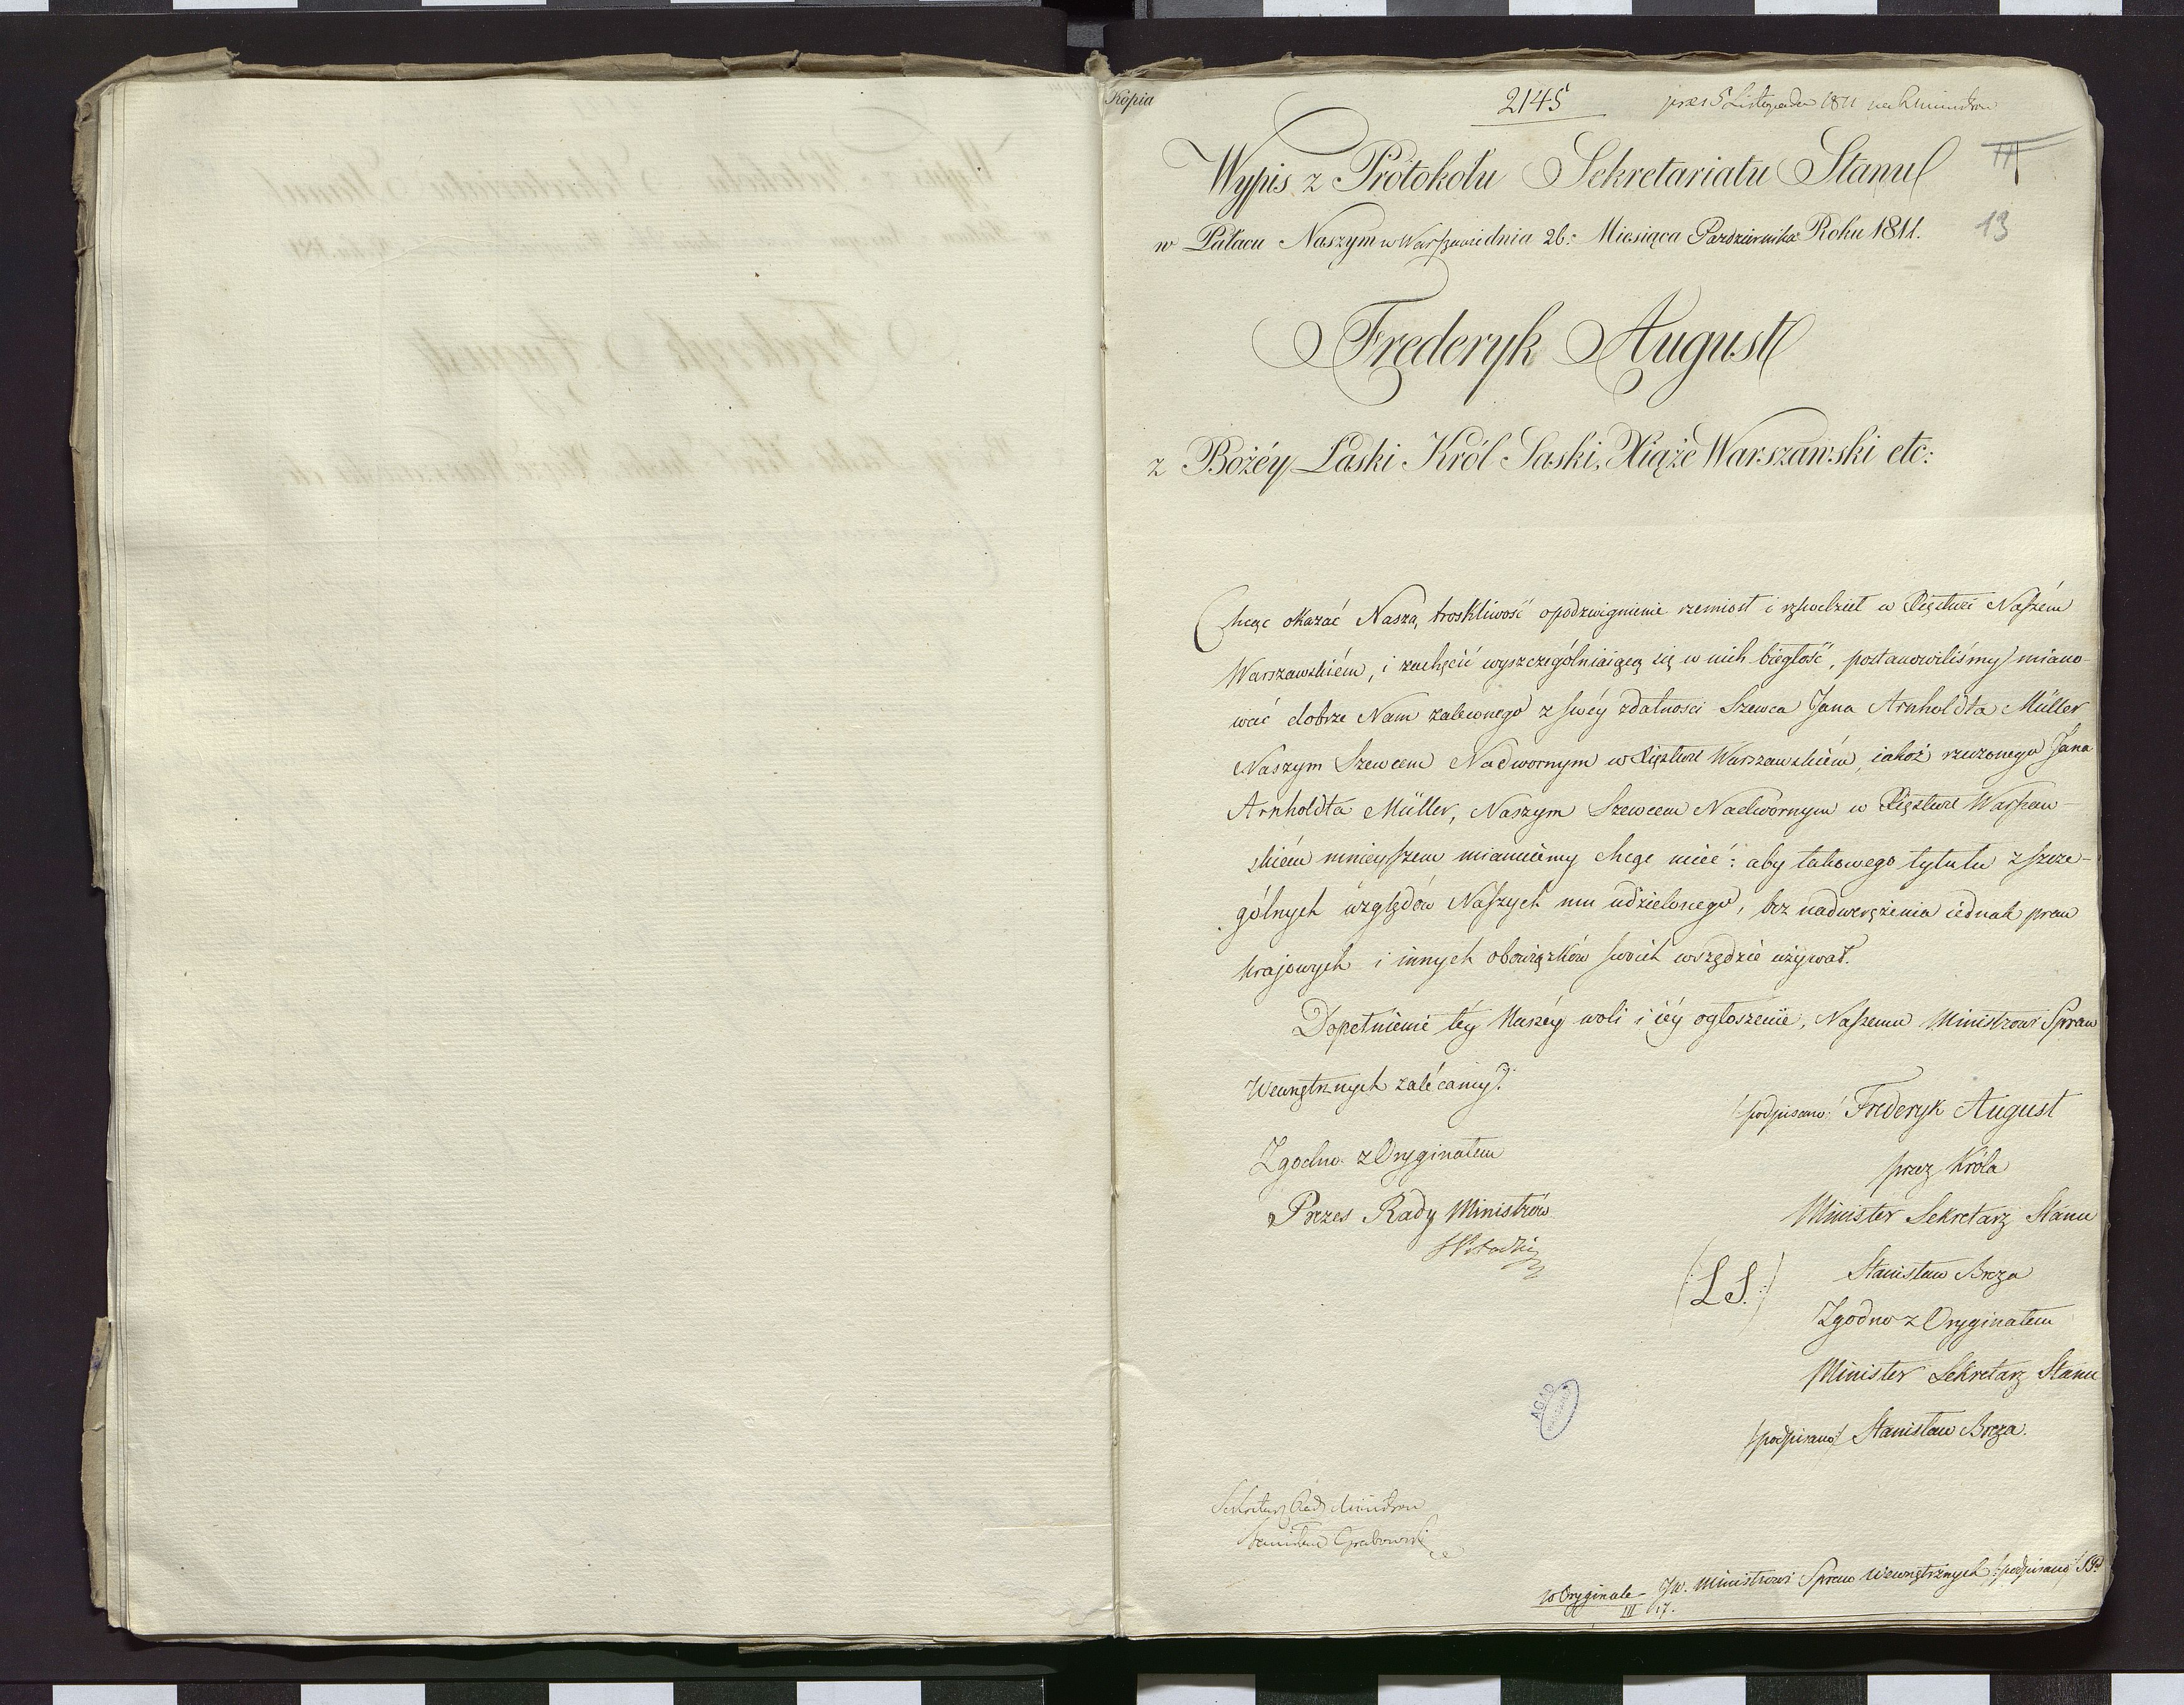 Kopia
2145
prez 5 Listopada 1811 na R
III
Wypis z Protokołu Sekretariatu Stanu
w Pałacu Naszym w Warszawie dnia 26: Miesiąca Pazdziernika Roku 1811.
13
Frederyk August
z Bożéy Łaski Król Saski, Xiąże Warszawski etc:
Chcąc okazać Naszą troskliwość o podzwignienie rzemiosł i rękodzieł w Xięstwie Naszém
Warszawskiém, i zachęcić wyszczególniaiącą się w nich biegłość, postanowiliśmy miano-
wać dobrze Nam zaleconego z swéy zdatności Szewca Jana Arnholdta Müller
Naszym Szewcem Nadwornym w Xięstwie Warszawskiém, iakoż rzeczonego Jana
Arnholdta Müller, Naszym Szewcem Nadwornym w Xięstwie Warszaw-
skiém ninieyszem mianuiemy chcąc mieć: aby takowego tytułu z szcze-
gólnych względów Naszych mu udzielonego, bez nadwerężenia iednak praw
krajowych i innych obowiązków swoich wszędzie używał.
Dopełnienie téy Naszéy woli i iéy ogłoszenie, Naszemu Ministrowi Spraw
Wewnętrznych zalécamy.
/podpisano:/ Frederyk August
Zgodno z Oryginałem
przez Króla
Prezes Rady Ministrów
Minister Sekretarz Stanu
SPotocki
(:L.S.:)
Stanisław Breza
Zgodno z Oryginałem
Minister Sekretarz Stanu
/podpisano/ Stanisław Breza.
AGAD
Sekretarz Rady Ministrow
Stanisław Grabowski
w Oryginale – JW. Ministrowi Spraw Wewnętrznych /:podpisano/ SP.
III 17.